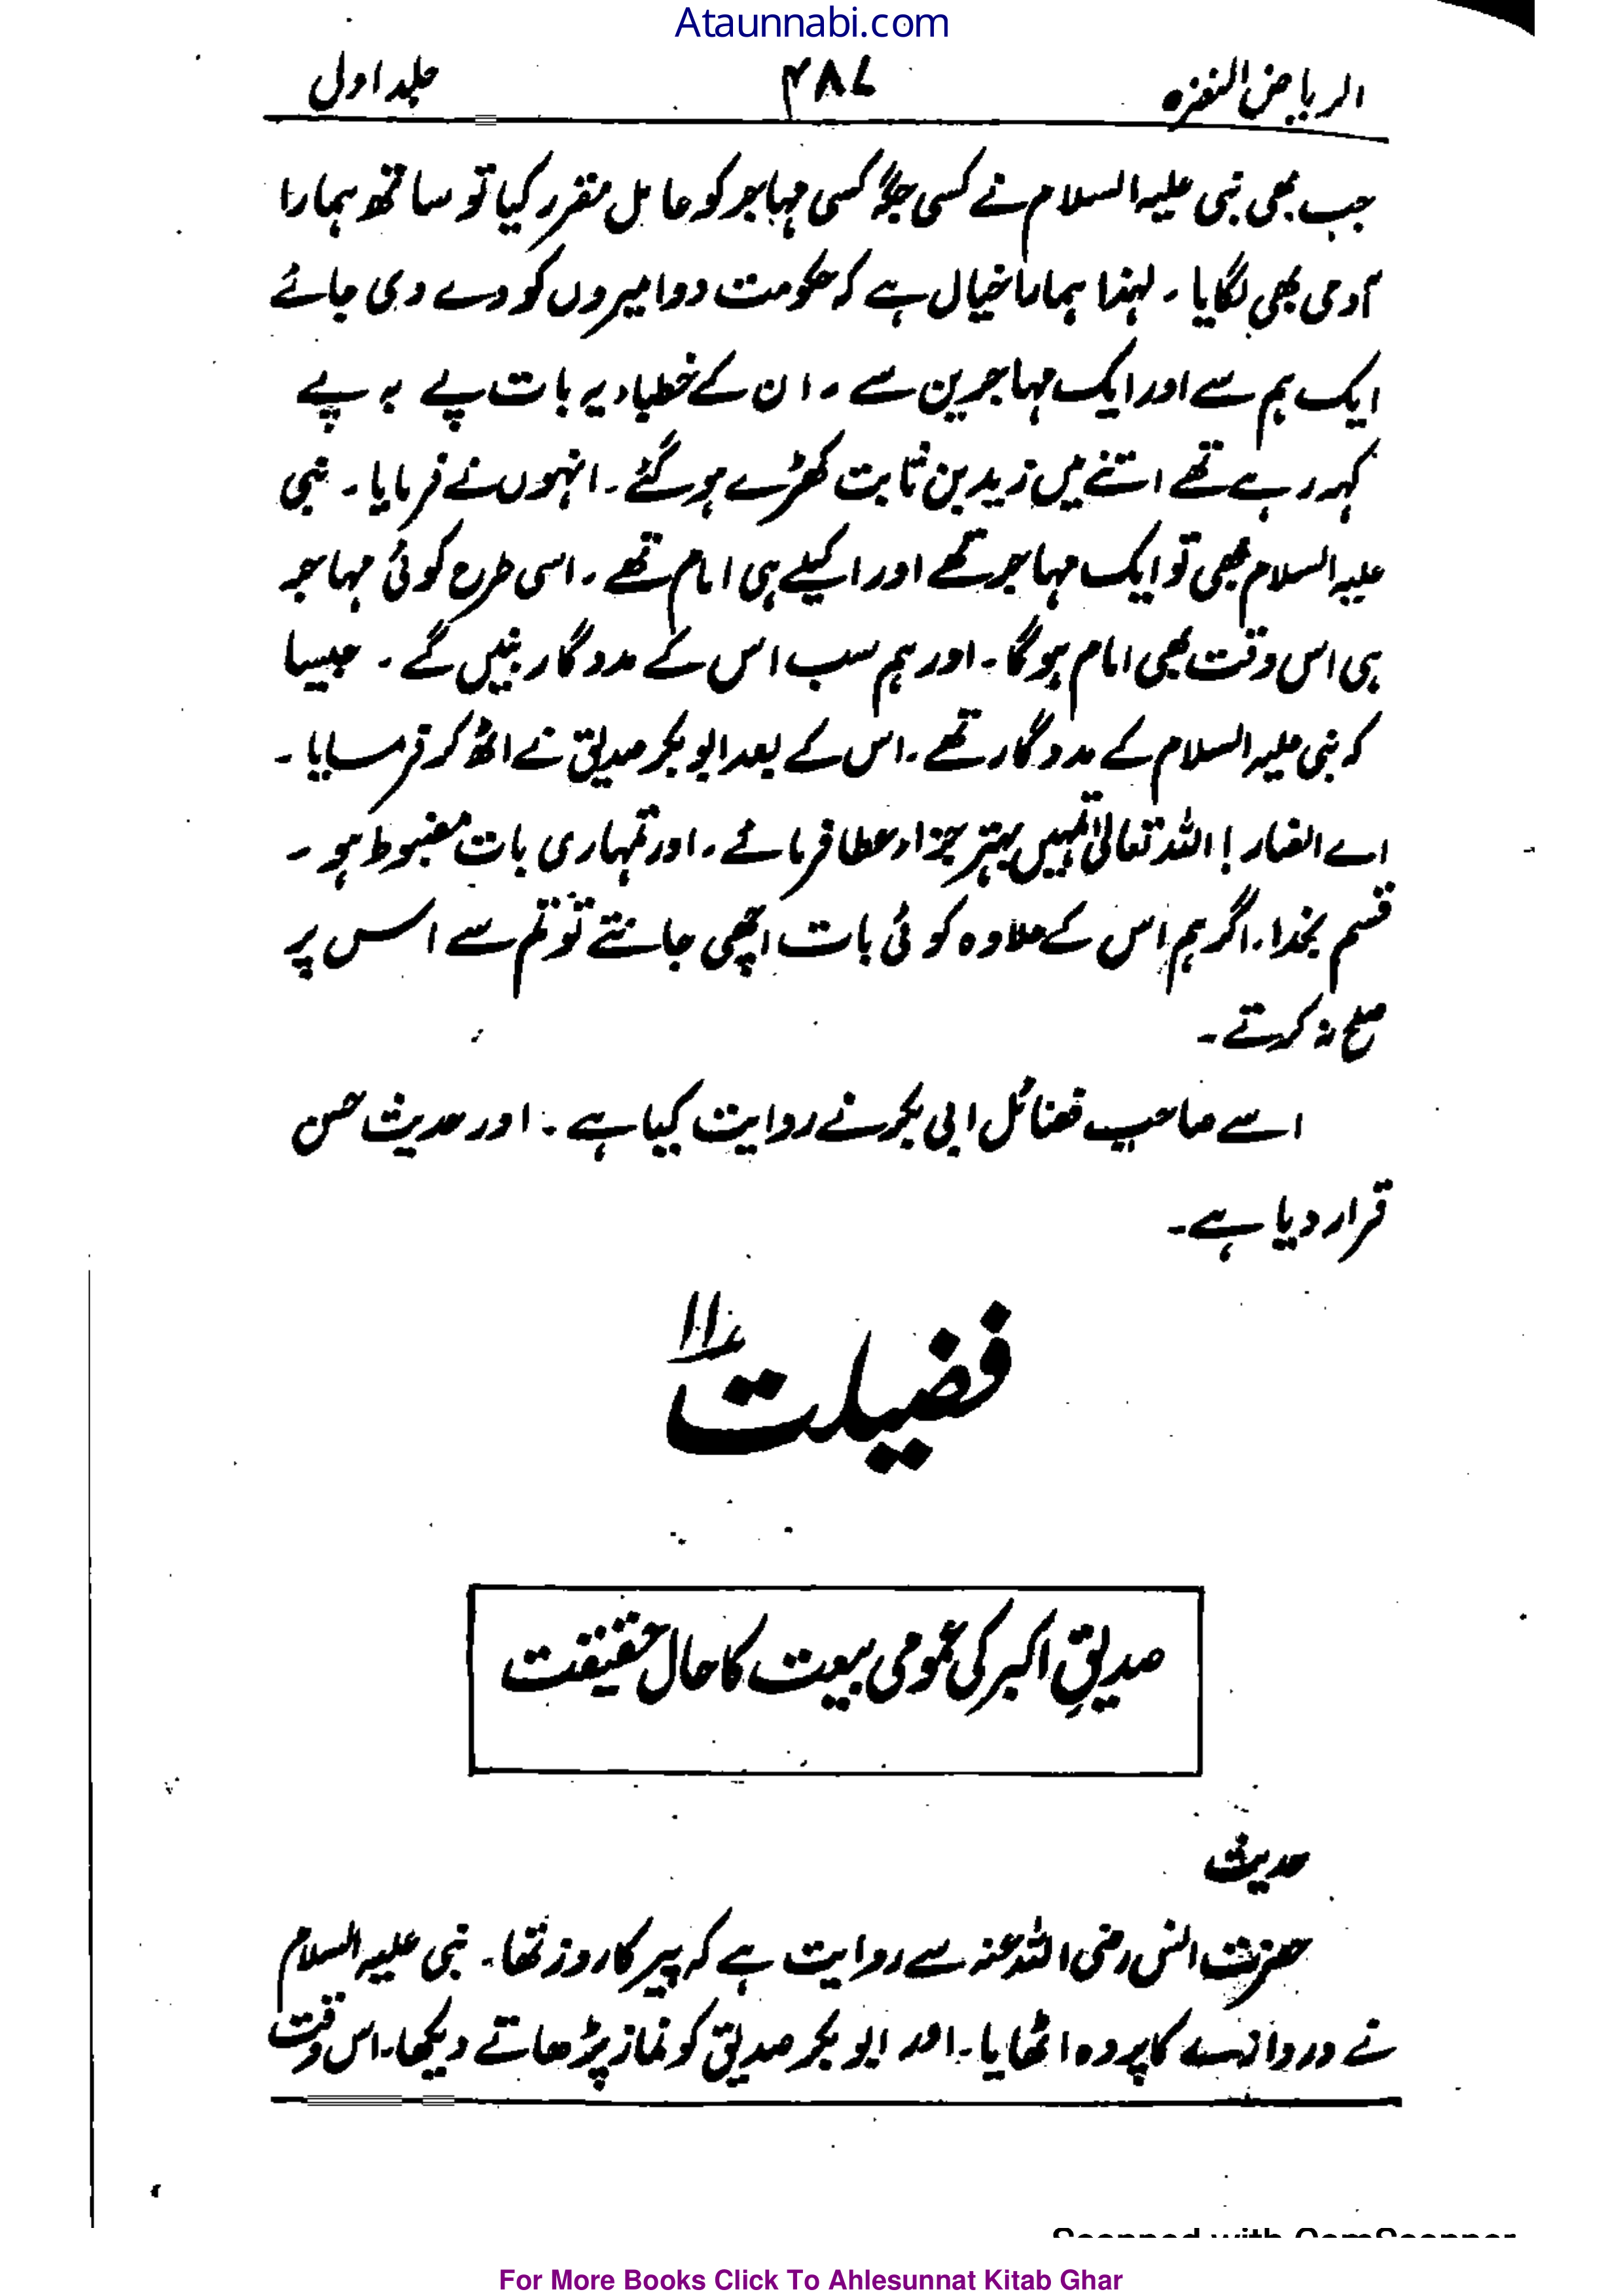 Ataunnabi.com
الریاض النضرہ ۴۸۷ جلد اول
جب بھی نبی علیہ السلام نے کسی جگہ کسی مہاجر کو عامل مقرر کیا تو ساتھ ہمارا
آدمی بھی لگایا۔ لہٰذا ہمارا خیال ہے کہ حکومت دو امیروں کو دے دی جائے
ایک ہم سے اور ایک مہاجرین سے۔ ان کے خطباء یہ بات پے بہ پے
کہہ رہے تھے اتنے میں زید بن ثابت کھڑے ہو گئے۔ انہوں نے فرمایا۔ نبی
علیہ السلام بھی تو ایک مہاجر تھے اور اکیلے ہی امام تھے۔ اسی طرح کوئی مہاجر
ہی اس وقت بھی امام ہو گا۔ اور ہم سب اس کے مددگار بنیں گے۔ جیسا
کہ نبی علیہ السلام کے مددگار تھے۔ اس کے بعد ابوبکر صدیق نے اٹھ کر فرمایا۔
اے انصار! اللہ تعالیٰ تمہیں بہتر جزاء عطا فرمائے۔ اور تمہاری بات مضبوط ہو۔
قسم بخدا۔ اگر ہم اس کے علاوہ کوئی بات اچھی جانتے تو تم سے اس پر
صلح نہ کرتے۔
اسے صاحب فضائل ابی بکر نے روایت کیا ہے۔ اور حدیث حسن
قرار دیا ہے۔
فضیلت ۱۱
صدیقِ اکبر کی عمومی بیعت کا حال حقیقت
حدیث
حضرت انس رضی اللہ عنہ سے روایت ہے کہ پیر کا روز تھا۔ نبی علیہ السلام
نے دروازے کا پردہ اٹھایا۔ اور ابوبکر صدیق کو نماز پڑھاتے دیکھا۔ اس وقت
Scanned with CamScanner
For More Books Click To Ahlesunnat Kitab Ghar